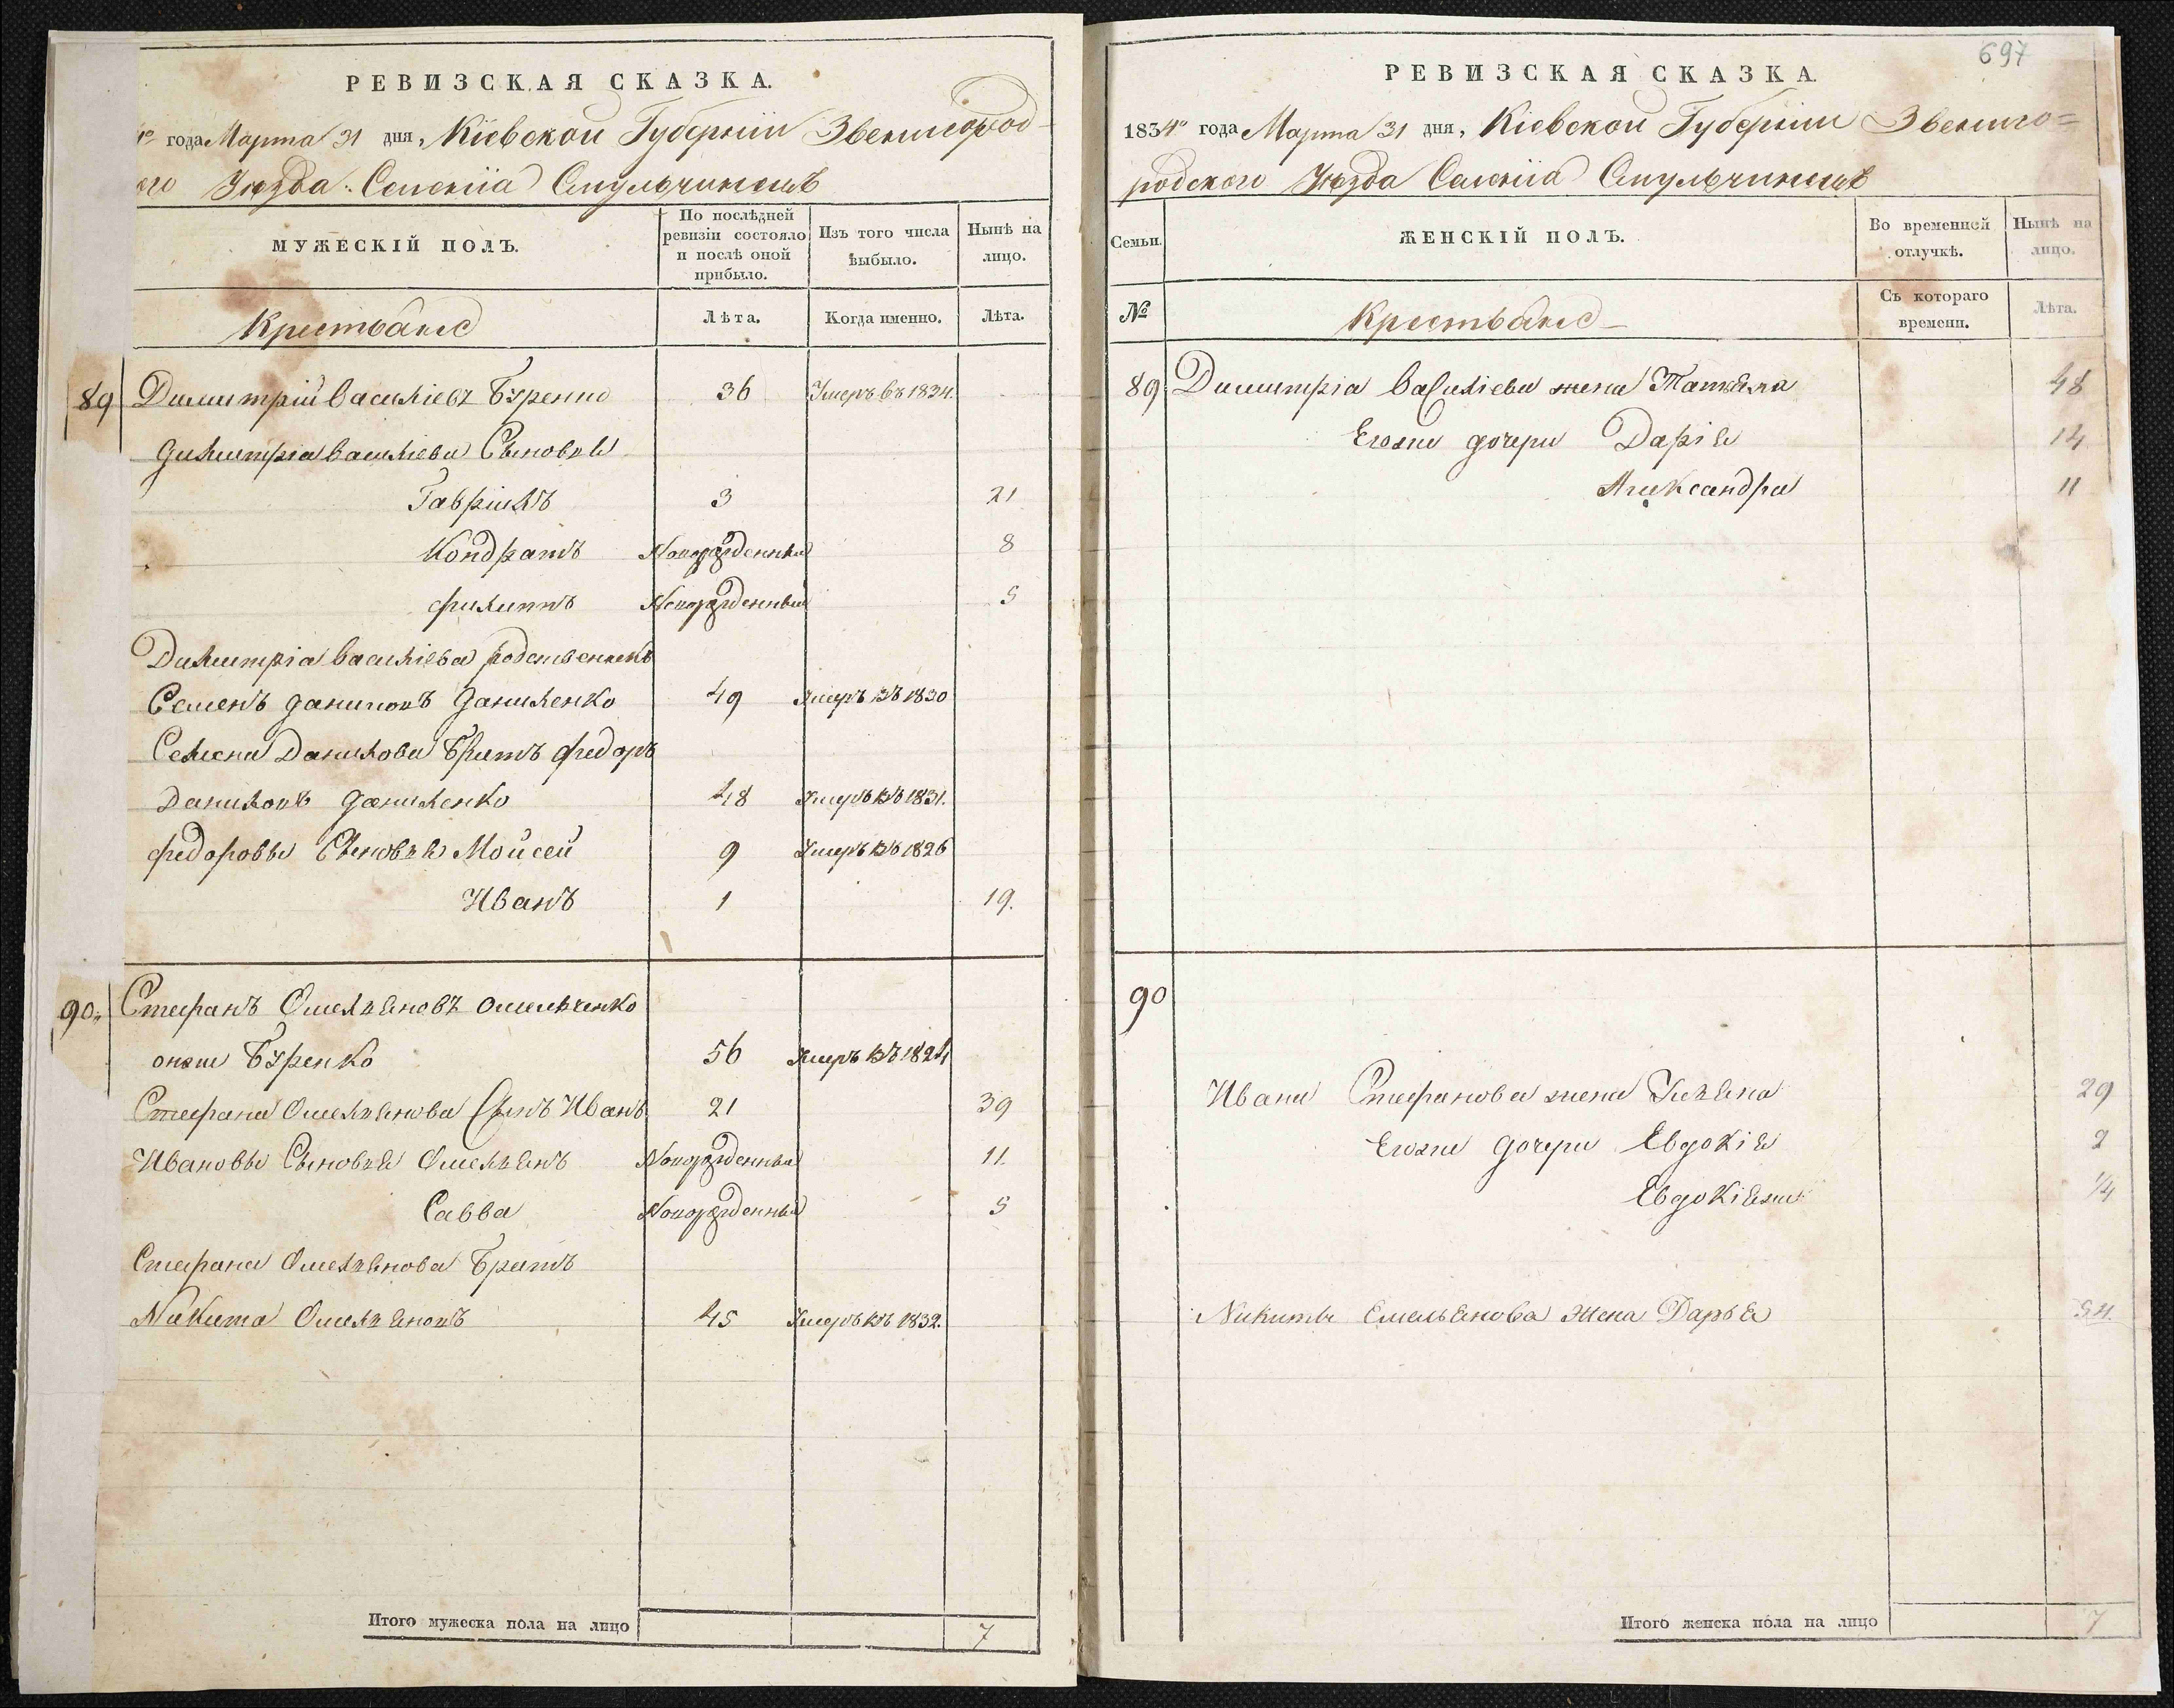 РЕВИЗСКАЯ СКАЗКА.
года Марта 31 дня, Кіевской Губерніи Звенигород-
ого Уѣзда Селенія Смульчинецъ
МУЖЕСКІЙ ПОЛЪ.
По послѣдней ревизіи состояло и послѣ оной прибыло.
Изъ того числа выбыло.
Нынѣ на лицо.
Крестьяне
Лѣта.
Когда именно.
Лѣта.
89 Димитрій Василіевъ Буренко 36 Умеръ въ 1834.
Димитрія Василіева Сыновья
Гавріилъ 3 21
Кондратъ Новорожденный 8
Филиппъ Новорожденный 5
Димитрія Василіева родственникъ
Семенъ Даниловъ Даниленко 49 Умеръ въ 1830
Семена Данилова Братъ Федоръ
Даниловъ Даниленко 48 Умеръ въ 1831.
Федоровы Сыновья Мойсей 9 Умеръ въ 1826
Иванъ 1 19.
90. Стефанъ Омельяновъ Омельченко
онже Буренко 56 Умеръ въ 1824
Стефана Омельянова Сынъ Иванъ 21 39
Ивановы Сыновья Омельянъ Новорожденный 11.
Савва Новорожденный 5
Стефана Омельянова Братъ
Никита Омельяновъ 45 Умеръ въ 1832.
Итого мужеска пола на лицо 7
697
РЕВИЗСКАЯ СКАЗКА.
1834го года Марта 31 дня, Кіевской Губерніи Звениго=
родского Уѣзда Селенія Смульчинецъ
Семьи.
ЖЕНСКІЙ ПОЛЪ.
Во временной отлучкѣ.
Нынѣ на лицо.
№
Крестьяне
Съ котораго времени.
Лѣта.
89 Димитрія Василіева жена Татьяна 48
Егоже дочери Дарія 14
Александра 11
90
Ивана Стефанова жена Ульяна 29
Егоже дочери Евдокія 2
Евдокіяже 1/4
Никиты Емельянова Жена Дарья 54.
Итого женска пола на лицо 7